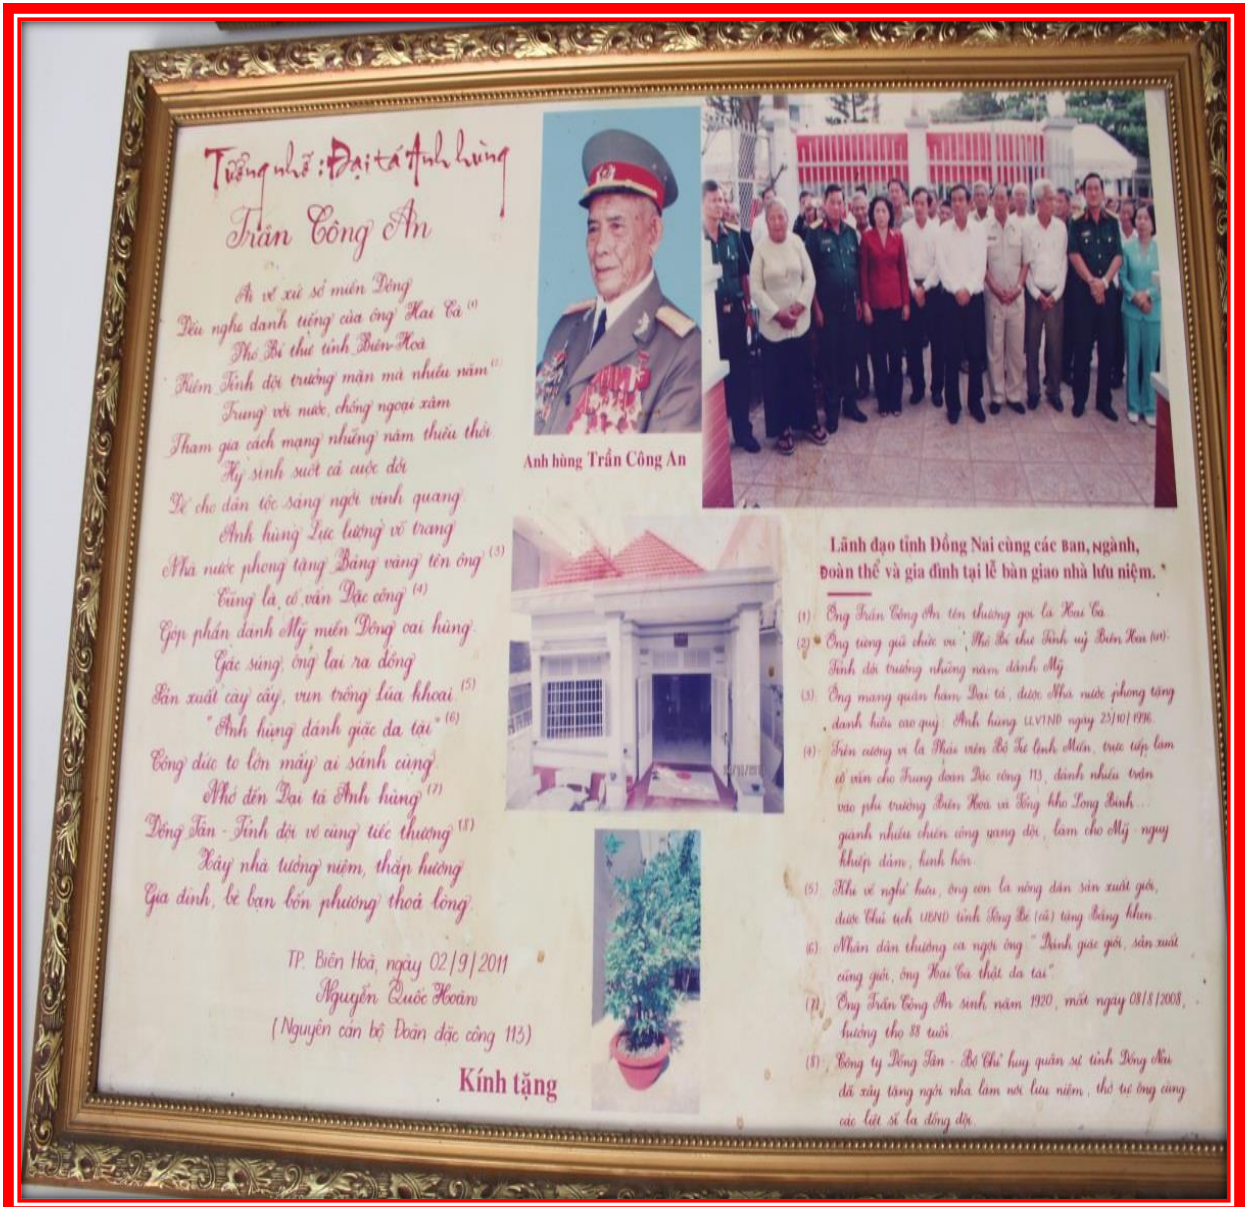 Tưởng nhớ: Đại tá Anh hùng
Trần Công An
Ai về xứ sở miền Đông
Đều nghe danh tiếng của ông Hai Cà (1)
Phó Bí thư tỉnh Biên Hoà
Kiêm Tỉnh đội trưởng mặn mà nhiều năm
Trung với nước, chống ngoại xâm
Tham gia cách mạng những năm thiếu thời
Hy sinh suốt cả cuộc đời
Để cho dân tộc sáng ngời vinh quang
Anh hùng Lực lượng vũ trang
Nhà nước phong tặng Bảng vàng tên ông (3)
Cũng là cố vấn Đặc công (4)
Góp phần đánh Mỹ miền Đông oai hùng
Gác súng, ông lại ra đồng
Sản xuất cày cấy, vun trồng lúa khoai (5)
"Anh hùng đánh giặc đa tài" (6)
Công đức to lớn mấy ai sánh cùng
Nhớ đến Đại tá Anh hùng (7)
Đồng Tân - Tỉnh đội vô cùng tiếc thương (8)
Xây nhà tưởng niệm, thắp hương
Gia đình, bè bạn bốn phương thoả lòng.
TP. Biên Hoà, ngày 02/9/2011
Nguyễn Quốc Hoàn
(Nguyên cán bộ Đoàn đặc công 113)
Kính tặng
Anh hùng Trần Công An
Lãnh đạo tỉnh Đồng Nai cùng các Ban, Ngành,
Đoàn thể và gia đình tại lễ bàn giao nhà lưu niệm.
(1) Ông Trần Công An tên thường gọi là Hai Cà.
(2) Ông từng giữ chức vụ: Phó Bí thư Tỉnh uỷ Biên Hoà
Tỉnh đội trưởng những năm đánh Mỹ
(3) Ông mang quân hàm Đại tá, được Nhà nước phong tặng
danh hiệu cao quý: Anh hùng LLVTND ngày 23/10/1996.
(4) Trên cương vị là Phái viên Bộ Tư lệnh Miền, trực tiếp làm
cố vấn cho Trung đoàn Đặc công 113, đánh nhiều trận
vào phi trường Biên Hoà và Tổng kho Long Bình...
giành nhiều chiến công vang dội, làm cho Mỹ - nguỵ
khiếp đảm, kinh hồn.
(5) Khi về nghỉ hưu, ông còn là nông dân sản xuất giỏi,
được Chủ tịch UBND tỉnh Sông Bé (cũ) tặng Bằng khen
(6) Nhân dân thường ca ngợi ông "Đánh giặc giỏi, sản xuất
cũng giỏi, ông Hai Cà thật đa tài".
(7) Ông Trần Công An sinh năm 1920, mất ngày 08/8/2008,
hưởng thọ 88 tuổi.
(8) Công ty Đồng Tân - Bộ Chỉ huy quân sự tỉnh Đồng Nai
đã xây tặng ngôi nhà làm nơi lưu niệm, thờ tự ông cùng
các liệt sĩ là đồng đội.